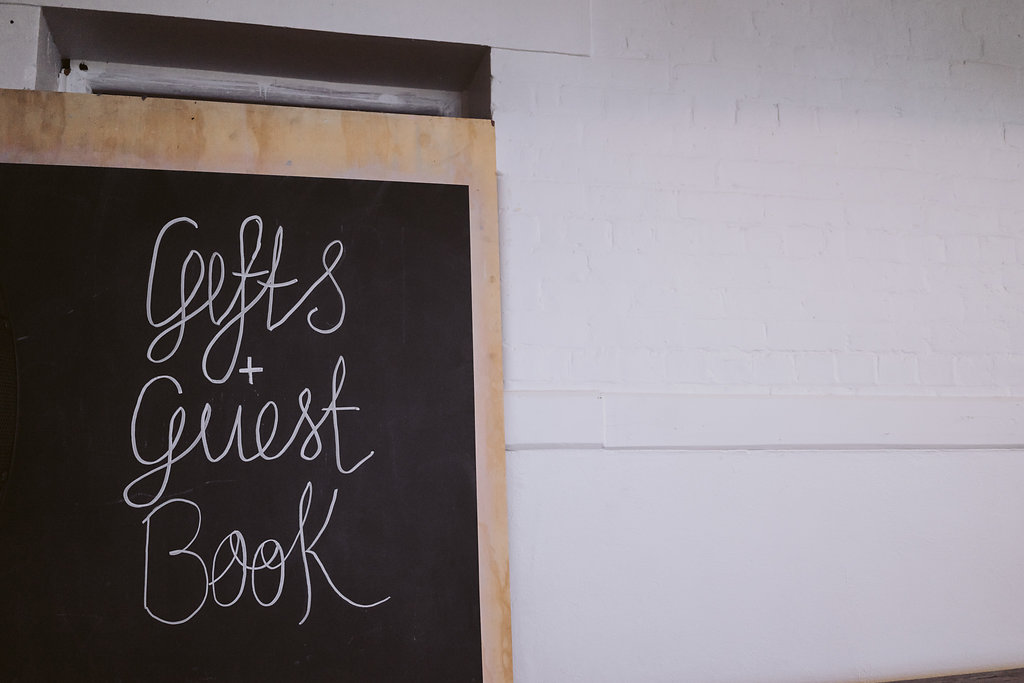 Gifts
+
Guest
Book